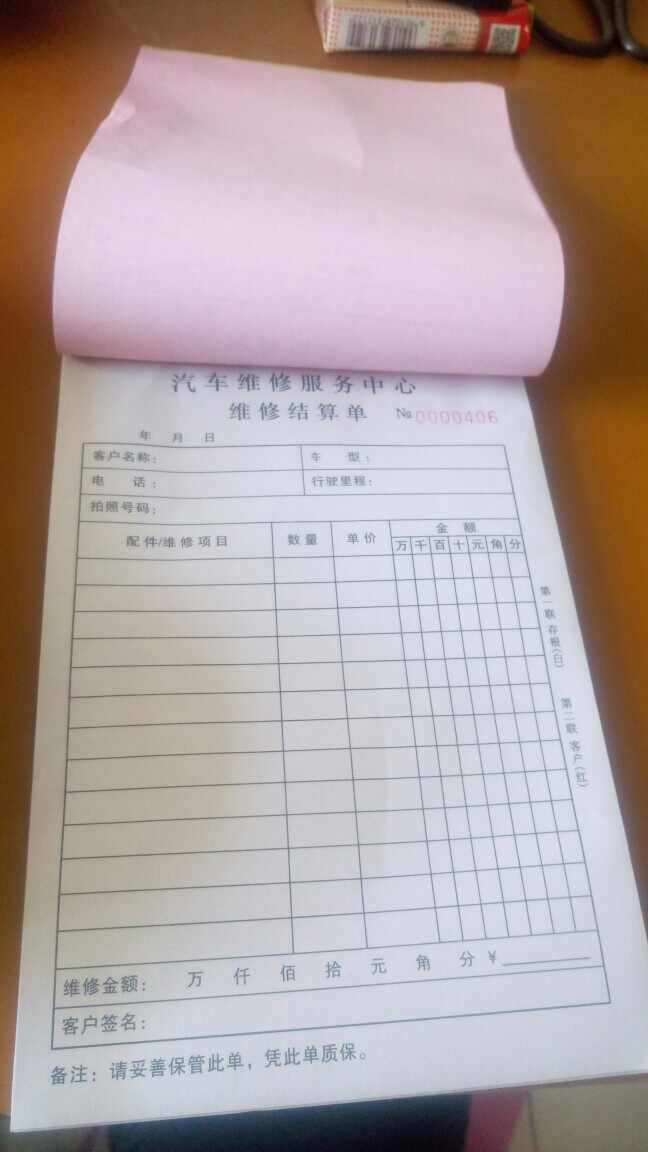 汽车维修服务中心
维修结算单 № 0000406
年 月 日
客户名称: 车 型:
电 话: 行驶里程:
拍照号码:
配件/维修项目 数量 单价 金 额
万 千 百 十 元 角 分
第一联 存根(白)
第二联 客户(红)
维修金额: 万 仟 佰 拾 元 角 分 ¥
客户签名:
备注: 请妥善保管此单, 凭此单质保。